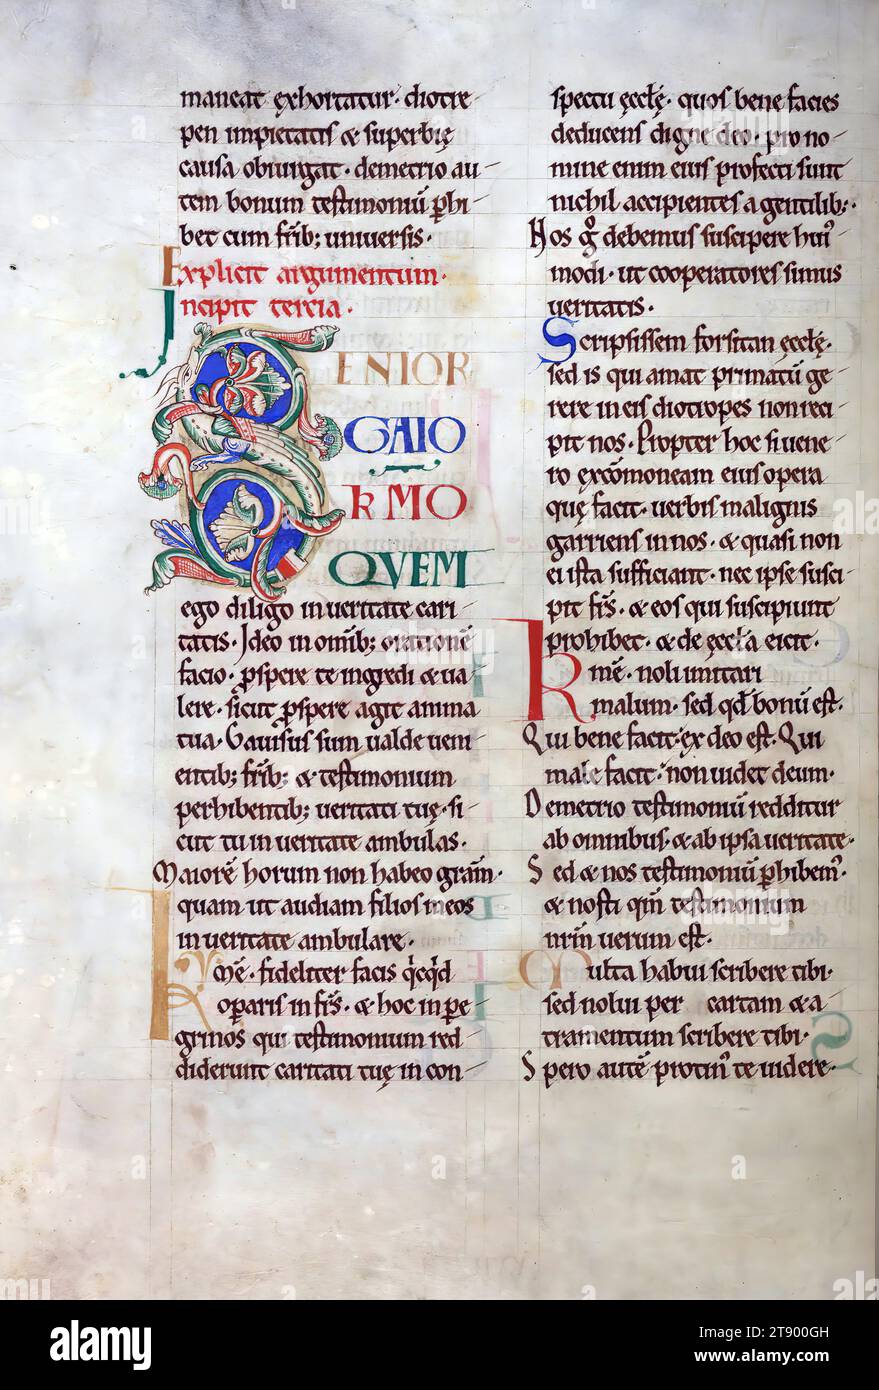 maneat ęxhortatur · diotre
pen impietatis & superbię
causa obiurgat · demetrio au
tem bonum testimoniū phi
bet cum frib; universis ·
Explicit argumentum ·
Incipit tercia ·
SENIOR
GAIO
KMO
QVEM
ego diligo in veritate cari
tatis · Ideo in omīb; orationē
facio · pspere te ingredi & va
lere · sicut pspere agit anima
tua · Gavisus sum valde veni
entib; frib; & testimonium
perhibentib; veritati tuę · si
cut tu in veritate ambulas ·
Maiorē horum non habeo gram̄ ·
quam ut audiam filios meos
in veritate ambulare ·
Kmē · fideliter facis qcqd
operaris in frs̄ · & hoc in pe
grinos qui testimonium red
diderunt caritati tuę in con
spectu ęcclę · quos bene facies
deducens digne deo · pro no
mine enim eius profecti sunt
nichil accipientes a gentilib; ·
Nos g debemus suscipere hui'
modi · ut cooperatores simus
veritatis ·
Scripsissem forsitan ęcclę ·
sed is qui amat primatū ge
rere in eis diotropes non reci
pit nos · Propter hoc si vene
ro exc̄omoneam eius opera
quę facit · verbis malignis
garriens in nos · & quasi non
ei ista sufficiant · nec ipse susci
pit frs̄ · & eos qui suscipiunt
prohibet · & de ęccła eicit ·
Kmē · noli imitari
malum · sed qđ bonū est ·
Qui bene facit · ex deo est · Qui
male facit · non videt deum ·
Demetrio testimoniū redditur
ab omnibus · & ab ipsa veritate ·
Sed & nos testimoniū phibem' ·
& nosti qm̄ testimonium
nrm̄ verum est ·
Multa habui scribere tibi ·
sed nolui per cartam & a
tramentum scribere tibi ·
Spero autē protin' te videre ·
alamy
Image ID: 2T900GH
www.alamy.com